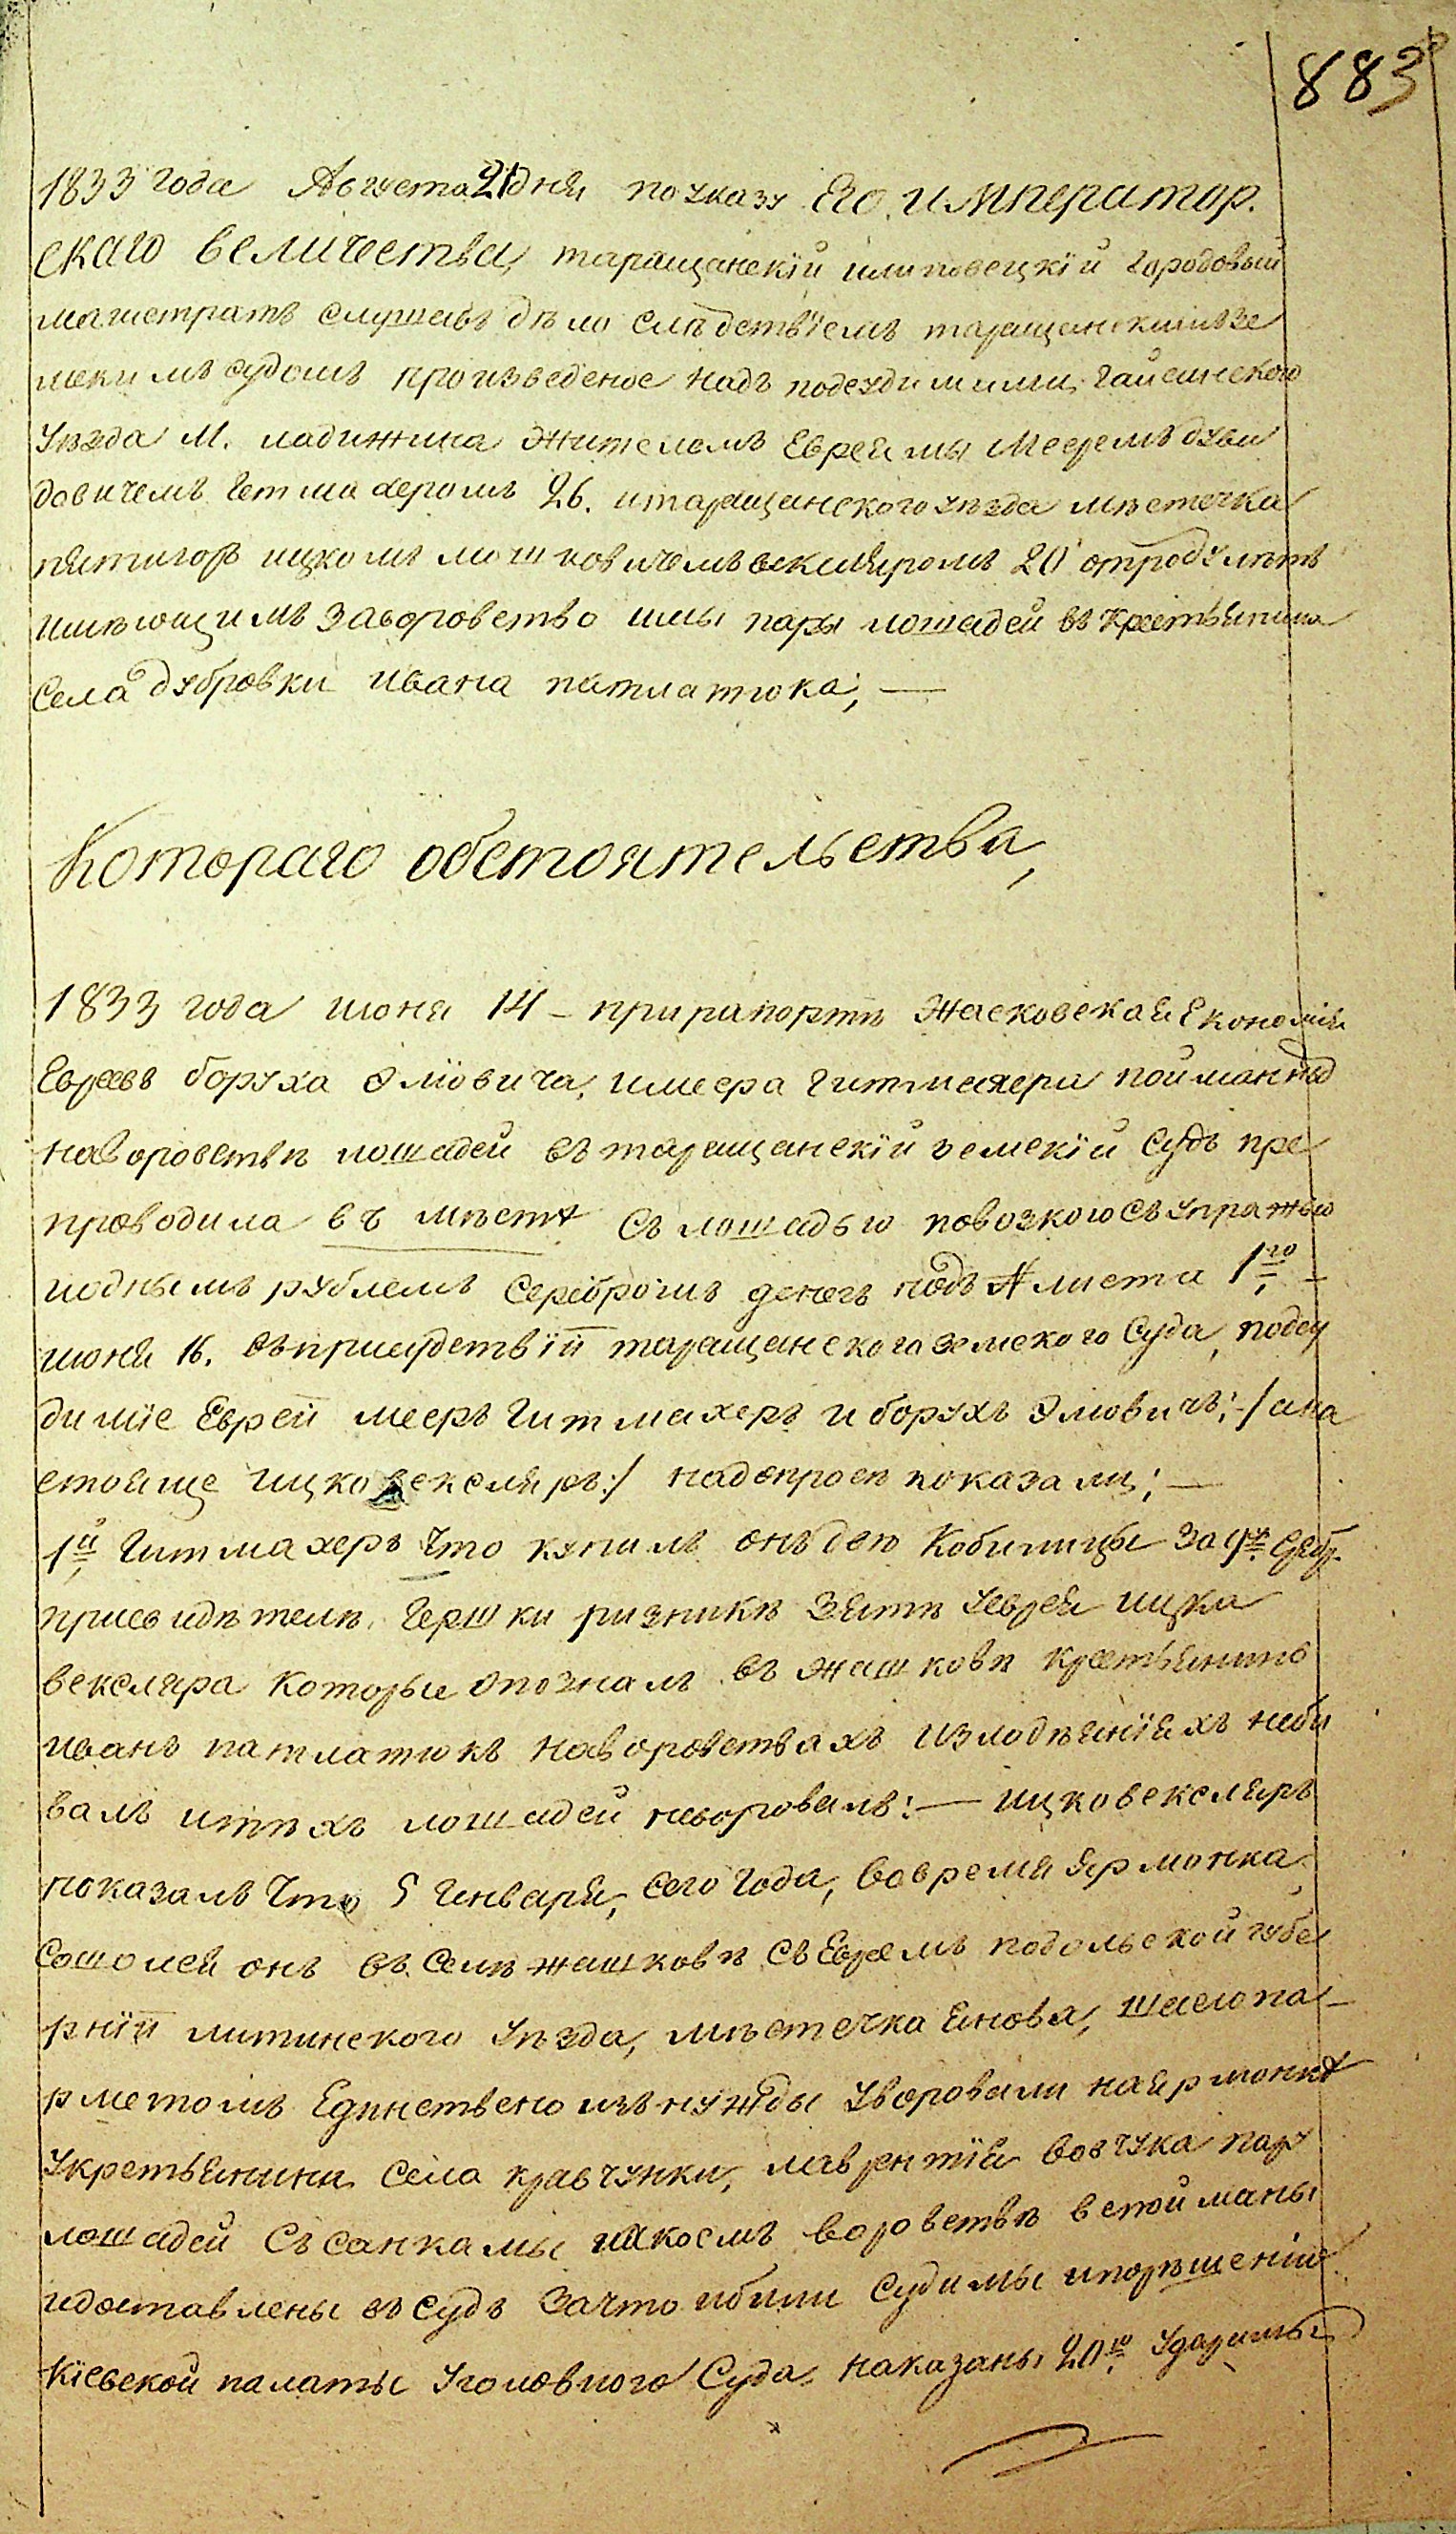 883
1833 года Августа 21 дня по указу Его Император.
скаго величества, таращанский илиповецкий городовый
магистратъ слушавъ дѣло слѣдствіемъ таращанскимъ зе
мскимъ судомъ произведеное надъ подсудимими, гайсинского
уѣзда М. ладижина жителемъ Евреимы Мееремъ дуви
довичемъ Гетмахеромъ 26. итаращанского уѣзда мѣстечка
пятигоръ ицкомъ мошковичемъ векслеромъ 20 отроду лѣтъ
имѣющимъ заворовство имы пары лошадей въ крестьянина
Села дубровки ивана патлатюка; —
Котораго обстоятельства,
1833 года июня 14 - прирапортѣ Жасковская Економія
Евреевъ боруха Элїовича, имеера гитмахера пойманных
наворовствѣ лошадей въ таращанскїй земскїй Судъ пре
проводила въ мѣстѣ съ лошадью повозкою съ упряжью
иоднымъ рублемъ серебромъ денегъ подъ № листа 1го –
июня 16. въприсудствїи таращанского земского Суда, подсу
димїе Евреи мееръ гитмахеръ и борухъ Элїовичъ; /: ана
стояще ицко векслеръ :/ надопросѣ показали; —
1й Гитмахеръ что купилъ онъ двѣ Кобилицы за 9 ру. сереб.
присвидѣтелѣ, гершки ризникѣ зятѣ Уеврея ицка
векслера Которые опозналъ въ жашковѣ крестьянинъ
иванъ патлатюкъ наворовствахъ излодѣянїяхъ неби
валъ итѣхъ лошадей неворовалъ: — ицко векслеръ
показалъ что 5 Генваря, сего года, вовремя ярмонка,
сошолся онъ въ Селѣ жашковѣ съ Евреемъ подольской губе
рнїи литинского уѣзда, мѣстечка янова, шаею па –
рметомъ Единствено изъ нужды уворовали наярмонкѣ
укрестьянина села кравчунки, лаврѣнтїя вовчука пару
лошадей съ санкамы накоемъ воровствѣ вспойманы
идоставлены въ судъ зачто ибили судимы ипорѣшению
Кїевской палаты Уголовного Суда, наказаны 20ю ударамы